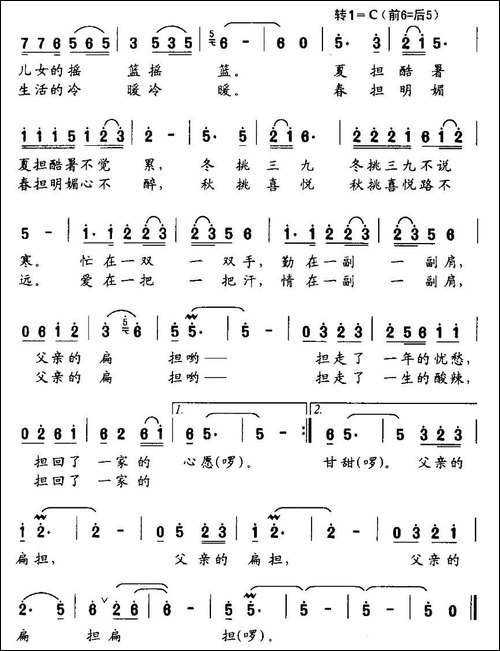 转1=C(前6=后5)
7 7 6 5 6 5 | 3 5 3 5 | 6 - | 6 0 | 5 · 3 | 2 1 5 ·
儿女的摇 篮摇 篮。 夏 担 酷 暑
生活的冷 暖冷 暖。 春 担 明 媚
1 1 1 5 1 2 3 | 2 - | 5 · 5 | 2 1 6 · | 2 2 2 1 6 1 2
夏担酷暑不觉 累, 冬 挑 三 九 冬挑三九不说
春担明媚心不 醉, 秋 挑 喜 悦 秋挑喜悦路不
5 - | 1 · 1 | 2 2 3 | 2 3 5 6 | 1 · 1 | 2 2 3 | 2 3 5 6
寒。 忙 在 一 双 一 双 手, 勤 在 一 副 一 副 肩,
远。 爱 在 一 把 一 把 汗, 情 在 一 副 一 副 肩,
0 6 1 2 | 3 · 6 | 5 5 · | 5 - | 0 3 2 3 | 2 5 6 1 1
父亲的 扁 担哟—— 担走了 一年的忧愁,
父亲的 扁 担哟—— 担走了 一生的酸辣,
1. 2.
0 2 6 1 | 6 2 6 1 | 6 5 · | 5 - :| 6 5 · | 3 2 2 3
担回了 一家的 心愿(啰)。 甘甜(啰)。 父亲的
担回了 一家的
1 2 · | 2 - | 0 5 2 3 | 1 2 · | 2 - | 0 3 2 1
扁担, 父亲的 扁担, 父亲的
2 · 5 | 6 ∨ 2 6 | 6 - | 5 - | 5 - | 5 - | 5 0 ‖
扁 担扁 担(啰)。